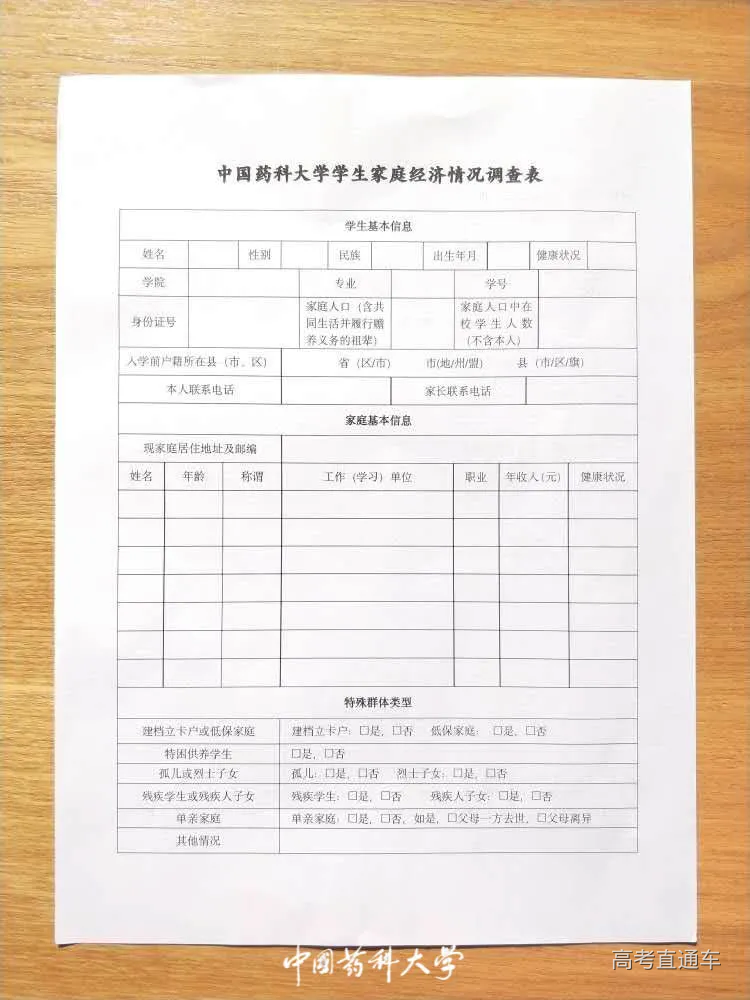 中国药科大学学生家庭经济情况调查表
学生基本信息
姓名 性别 民族 出生年月 健康状况
学院 专业 学号
身份证号 家庭人口（含共同生活并履行赡养义务的祖辈） 家庭人口中在校学生人数（不含本人）
入学前户籍所在县（市、区） 省（区/市） 市(地/州/盟) 县（市/区/旗）
本人联系电话 家长联系电话
家庭基本信息
现家庭居住地址及邮编
姓名 年龄 称谓 工作（学习）单位 职业 年收入(元) 健康状况
特殊群体类型
建档立卡户或低保家庭 建档立卡户：□是，□否 低保家庭： □是，□否
特困供养学生 □是，□否
孤儿或烈士子女 孤儿：□是，□否 烈士子女：□是，□否
残疾学生或残疾人子女 残疾学生：□是，□否 残疾人子女：□是，□否
单亲家庭 单亲家庭：□是，□否，如是，□父母一方去世，□父母离异
其他情况
中国药科大学
高考直通车